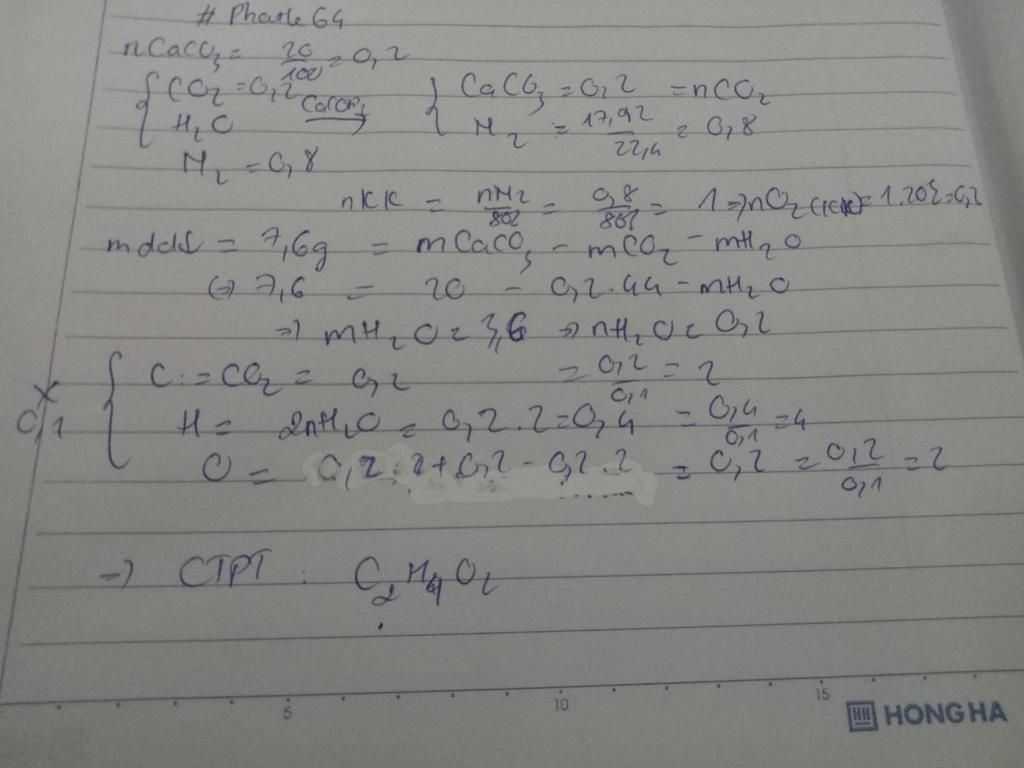 # Phale 64
nCaCO3 = 20/100 = 0,2
CO2 = 0,2 Ca(OH)2 CaCO3 = 0,2 = nCO2
H2O → N2 = 17,92/22,4 = 0,8
N2 = 0,8
nKK = nN2/80% = 0,8/80% = 1 => nO2 (KK) = 1.20% = 0,2
mdd↓ = 7,6g = mCaCO3 - mCO2 - mH2O
(=) 7,6 = 20 - 0,2.44 - mH2O
=> mH2O = 3,6 => nH2O = 0,2
X 0,1
C : = CO2 = 0,2 = 0,2/0,1 = 2
H = 2nH2O = 0,2.2 = 0,4 = 0,4/0,1 = 4
O = 0,2.2 + 0,2 - 0,2.2 = 0,2 = 0,2/0,1 = 2
=> CTPT : C2H4O2
5 10 15
HONG HA